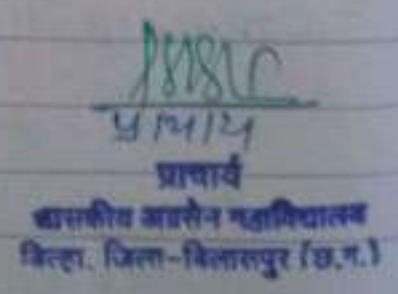 प्राचार्य
शासकीय अग्रसेन महाविद्यालय
बिल्हा, जिला-बिलासपुर (छ.ग.)